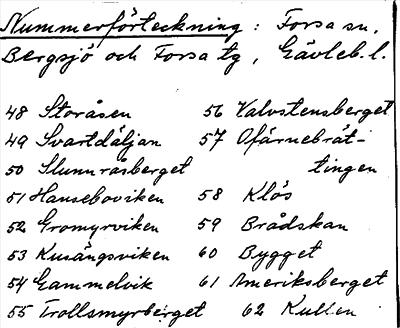 Nummerförteckning : Forsa sn,
Bergsjö och Forsa tg, Gävleb. l.
48 Storåsen
49 Svartdäljan
50 Slunnråsberget
51 Hanseboviken
52 Gromyrviken
53 Kusängsviken
54 Gammelvik
55 Trollsmyrberget
56 Valvstensberget
57 Ofärnebrät-
tingen
58 Klös
59 Brådskan
60 Bygget
61 Ameriksberget
62 Kullen